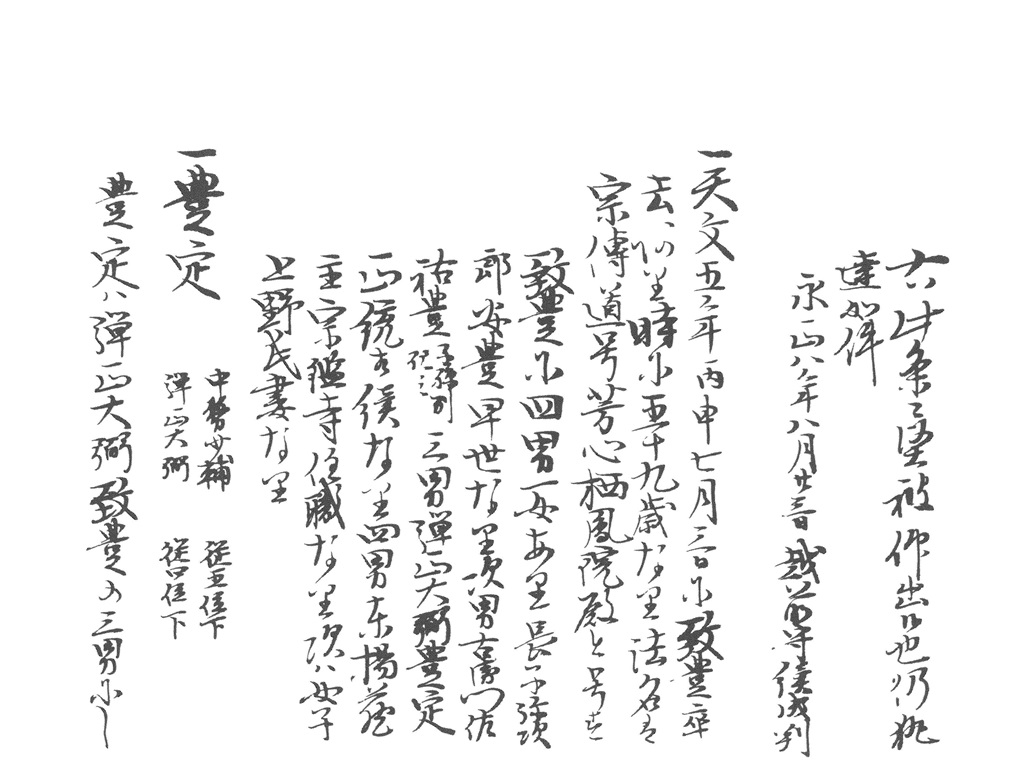 六ヶ条之堅被仰出者也仍執
達如件
永正八年八月廿三日 越前守貞俊判
一天文五年丙申七月三日ニ致豊卒
去、此時ニ五十九歳なり法名を
宗傳道号芳心栖鳳院殿と号す
一致豊ニ四男一女あり長子次
郎安豊早世なり次男右衛門佐
祐豊 三男弾正大弼豊定
四男東揚蔵
主宗鑑寺住職なり次ハ女子
上野氏妻なり
一豊定 中務少輔 従五位下
弾正大弼 従四位下
豊定ハ弾正大弼致豊の三男にし